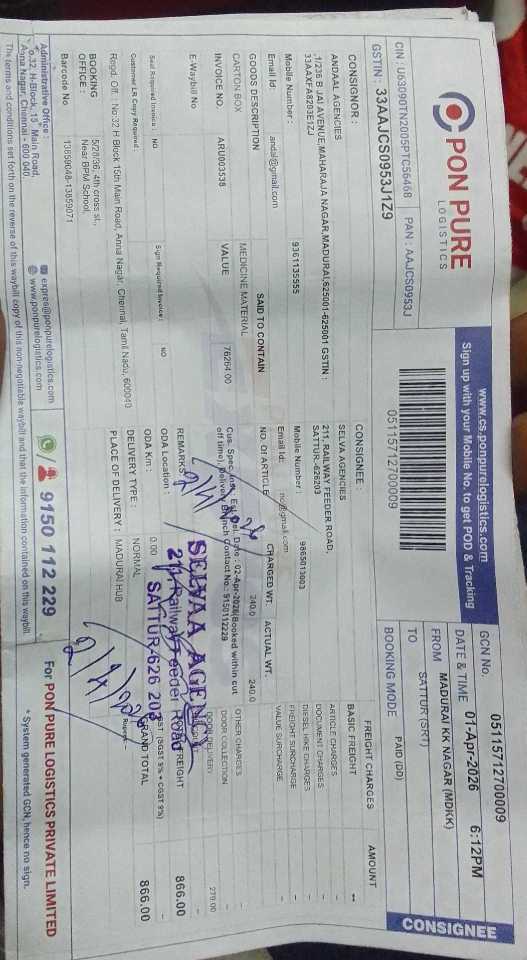 PON PURE
LOGISTICS
www.cs.ponpurelogistics.com
Sign up with your Mobile No. to get POD & Tracking
CONSIGNEE
CIN : U63090TN2005PTC56468 PAN : AAJCS0953J
GSTIN : 33AAJCS0953J1Z9
05115712700009
GCN No. 05115712700009
DATE & TIME 01-Apr-2026 6:12PM
FROM MADURAI KK NAGAR (MDKK)
TO SATTUR (SRT)
BOOKING MODE PAID (DD)
CONSIGNOR :
ANDAAL AGENCIES
,1/236 B JAI AVENUE,MAHARAJA NAGAR,MADURAI,625001-625001 GSTIN :
33AAXFA8293E1ZJ
Mobile Number : 9361135955
Email Id: andal@gmail.com
CONSIGNEE :
SELVA AGENCIES
211, RAILWAY FEEDER ROAD,
SATTUR-626203
Mobile Number : 9865013003
Email Id: no@gmail.com
FREIGHT CHARGES AMOUNT
BASIC FREIGHT --
ARTICLE CHARGES -
DOCUMENT CHARGES -
DIESEL HIKE CHARGES -
FREIGHT SURCHARGE -
VALUE SURCHARGE -
OTHER CHARGES -
DOOR COLLECTION -
DOOR DELIVERY 279.00
FREIGHT 866.00
GST (SGST 9% + CGST 9%) -
GRAND TOTAL 866.00
GOODS DESCRIPTION SAID TO CONTAIN NO. OF ARTICLE CHARGED WT. ACTUAL WT.
CARTON BOX MEDICINE MATERIAL 240.0 240.0
INVOICE NO. ARU003538 VALUE 76264.00
E-Waybill No
Cus. Spec. Inst. Est Del. Date : 02-Apr-2026(Booked within cut
off time) Delivery Branch Contact No.: 9150112229
REMARKS
Seal Required Invoice : NO Sign Required Invoice : NO
Customer LR Copy Required :
ODA Location :
ODA Km : 0.00
Regd. Off. : No:32 H Block 15th Main Road, Anna Nagar, Chennai, Tamil Nadu, 600040
DELIVERY TYPE : NORMAL
BOOKING OFFICE : 5/28/36, 4th cross st., Near BPM School,
PLACE OF DELIVERY : MADURAI HUB
Barcode No 13859048-13859071
SELVAA AGENCY
211, Railway Feeder Road
SATTUR-626 203
2/4/26
2/4/26
Administrative Office :
No.32, H-Block, 15th Main Road,
Anna Nagar, Chennai - 600 040
expres@ponpurelogistics.com
www.ponpurelogistics.com
9150 112 229
For PON PURE LOGISTICS PRIVATE LIMITED
The terms and conditions set forth on the reverse of this waybill copy of this non-negotiable waybill and that the information contained on this waybill
* System generated GCN, hence no sign.